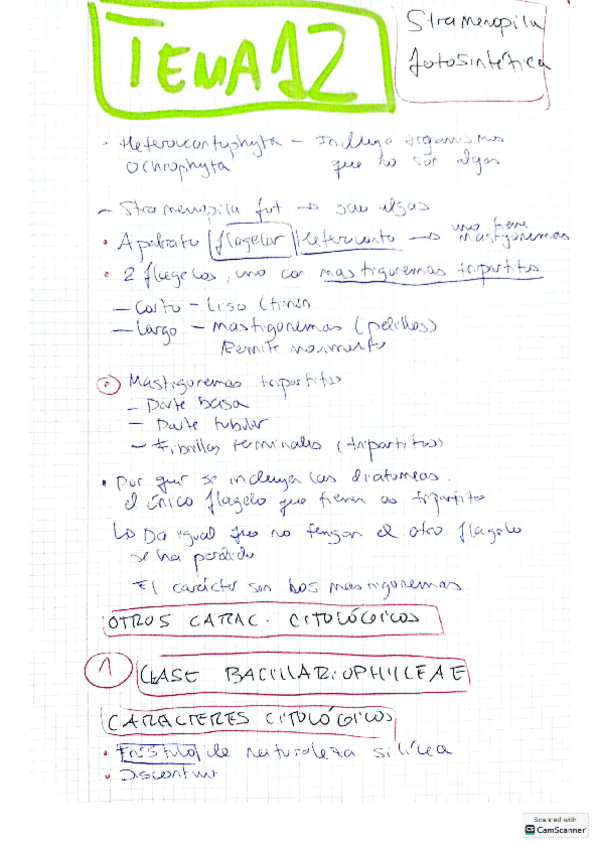 TEMA 12
Stramenopila
fotosintética
• Heterocontophyta – Incluye organismos
Ochrophyta que no son algas
– Stramenopila fot → son algas
• Aparato flagelar heteroconto → uno tiene
mastigonemas
• 2 flagelos, uno con mastigonemas tripartitos
– Corto – liso
– Largo – mastigonemas (pelillos)
Permite movimiento
• Mastigonemas tripartitos
– Parte basa
– Parte tubular
– Fibrillas terminales (tripartitos)
• Por que se incluyen las diatomeas.
el único flagelo que tienen es tripartito
↳ Da igual que no tengan el otro flagelo
se ha perdido
El carácter son los mastigonemas
OTROS CARAC. CITOLÓGICOS
1 CLASE BACILLARIOPHYCEAE
CARACTERES CITOLÓGICOS
• Frústulo de naturaleza silícea
• Discontinuo
Scanned with
CS CamScanner